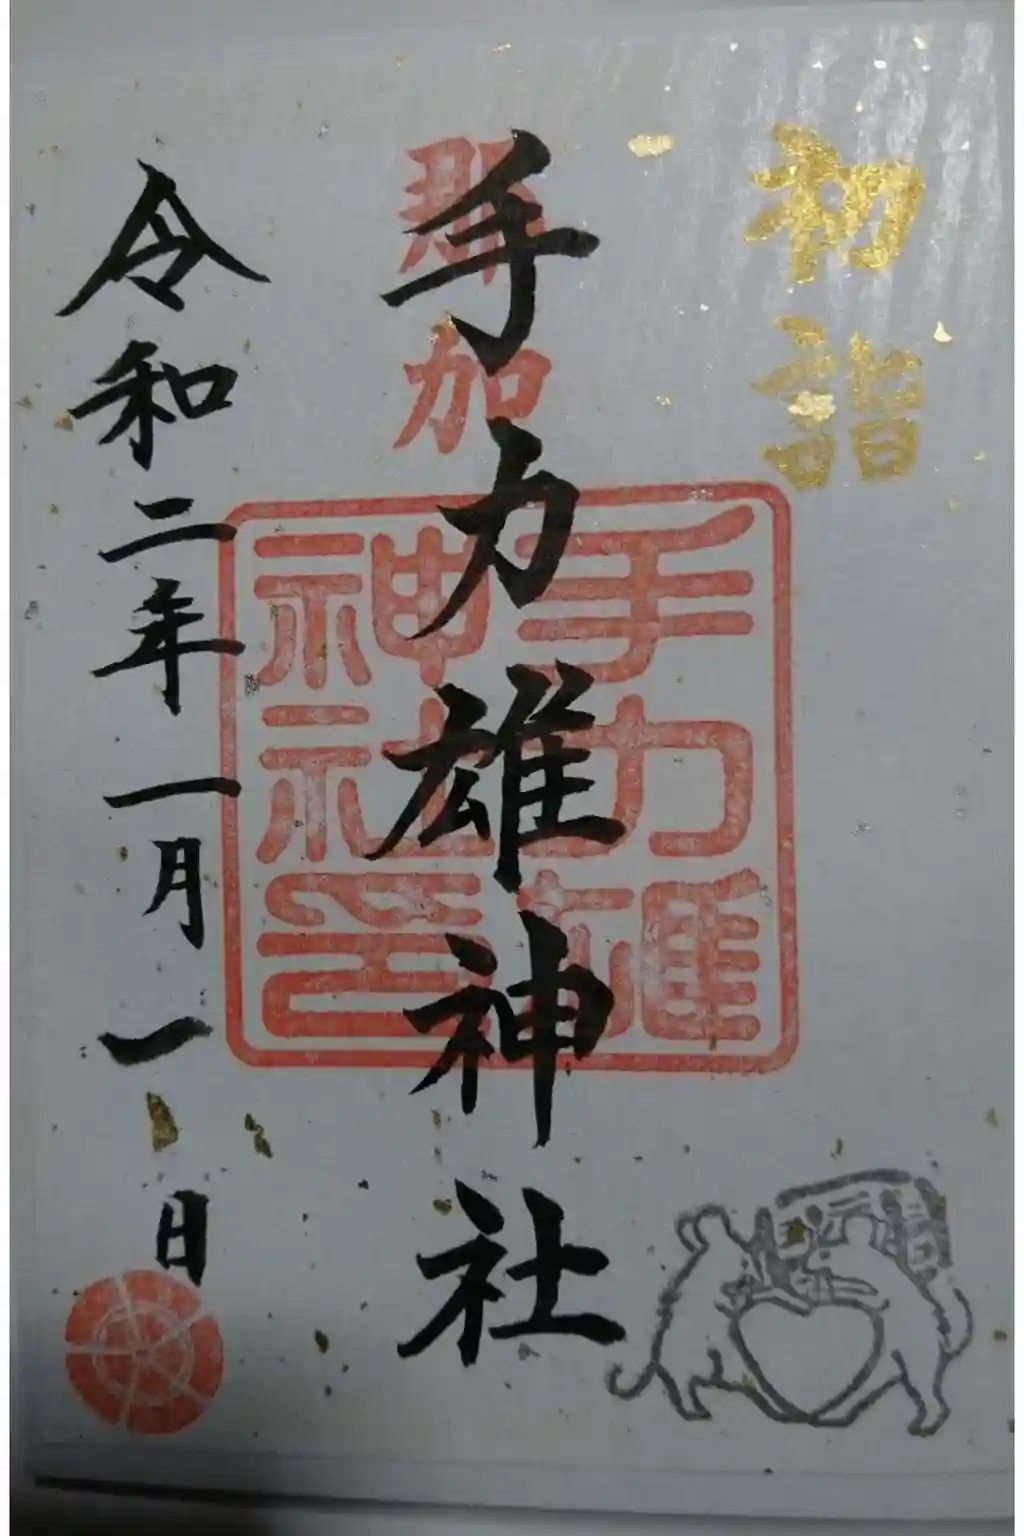 初詣
那加
手力雄神社
手力雄
神社印
令和二年一月一日